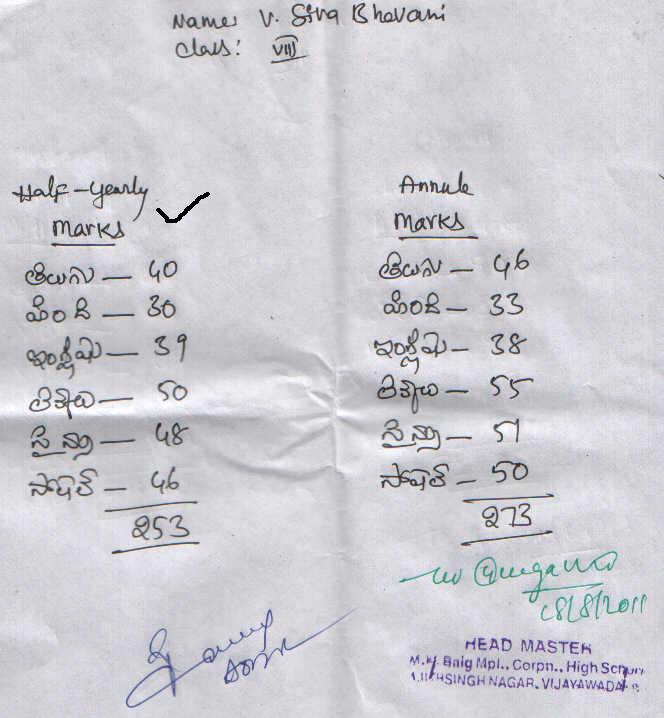 Name: V. Siva Bhavani
Class: VIII
Half-yearly
Marks
తెలుగు — 40
హింది — 30
ఇంగ్లీషు — 39
లెక్కలు — 50
సైన్సు — 48
సోషల్ — 46
253
Annule
Marks
తెలుగు — 46
హింది — 33
ఇంగ్లీషు — 38
లెక్కలు — 55
సైన్సు — 51
సోషల్ — 50
273
18/8/2011
HEAD MASTER
Baig Mpl., Corpn., High School
SINGH NAGAR, VIJAYAWADA